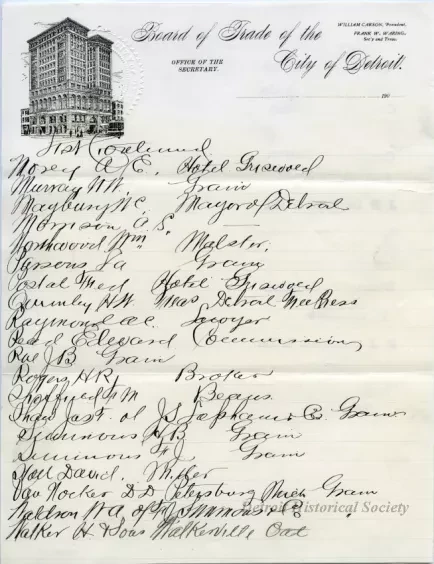 Board of Trade of the
City of Detroit.
OFFICE OF THE
SECRETARY.
WILLIAM CARSON, President.
FRANK W. WARING,
Sec'y and Treas.
190
List Continued
Morey A. E. Hotel Griswold
Murray W W. Grain
Maybury W C. Mayor of Detroit
Morrison A. S.
Northwood Wm Malster.
Parsons Grain
Postal Fred Hotel Griswold
H W Detroit
Raymond A C. Lawyer
Read Edward Commission
Rae J B Grain
Rogers H R. Broker
M Beans
Shaw Jas. T. of & Co. Grain
Simmons H B Grain
Simmons F J Grain
Stott David. Miller
Van Nocker D D Petersburg Mich Grain
Waldron W A of & Co.
Walker H & Sons Walkerville Ont
Detroit Historical Society